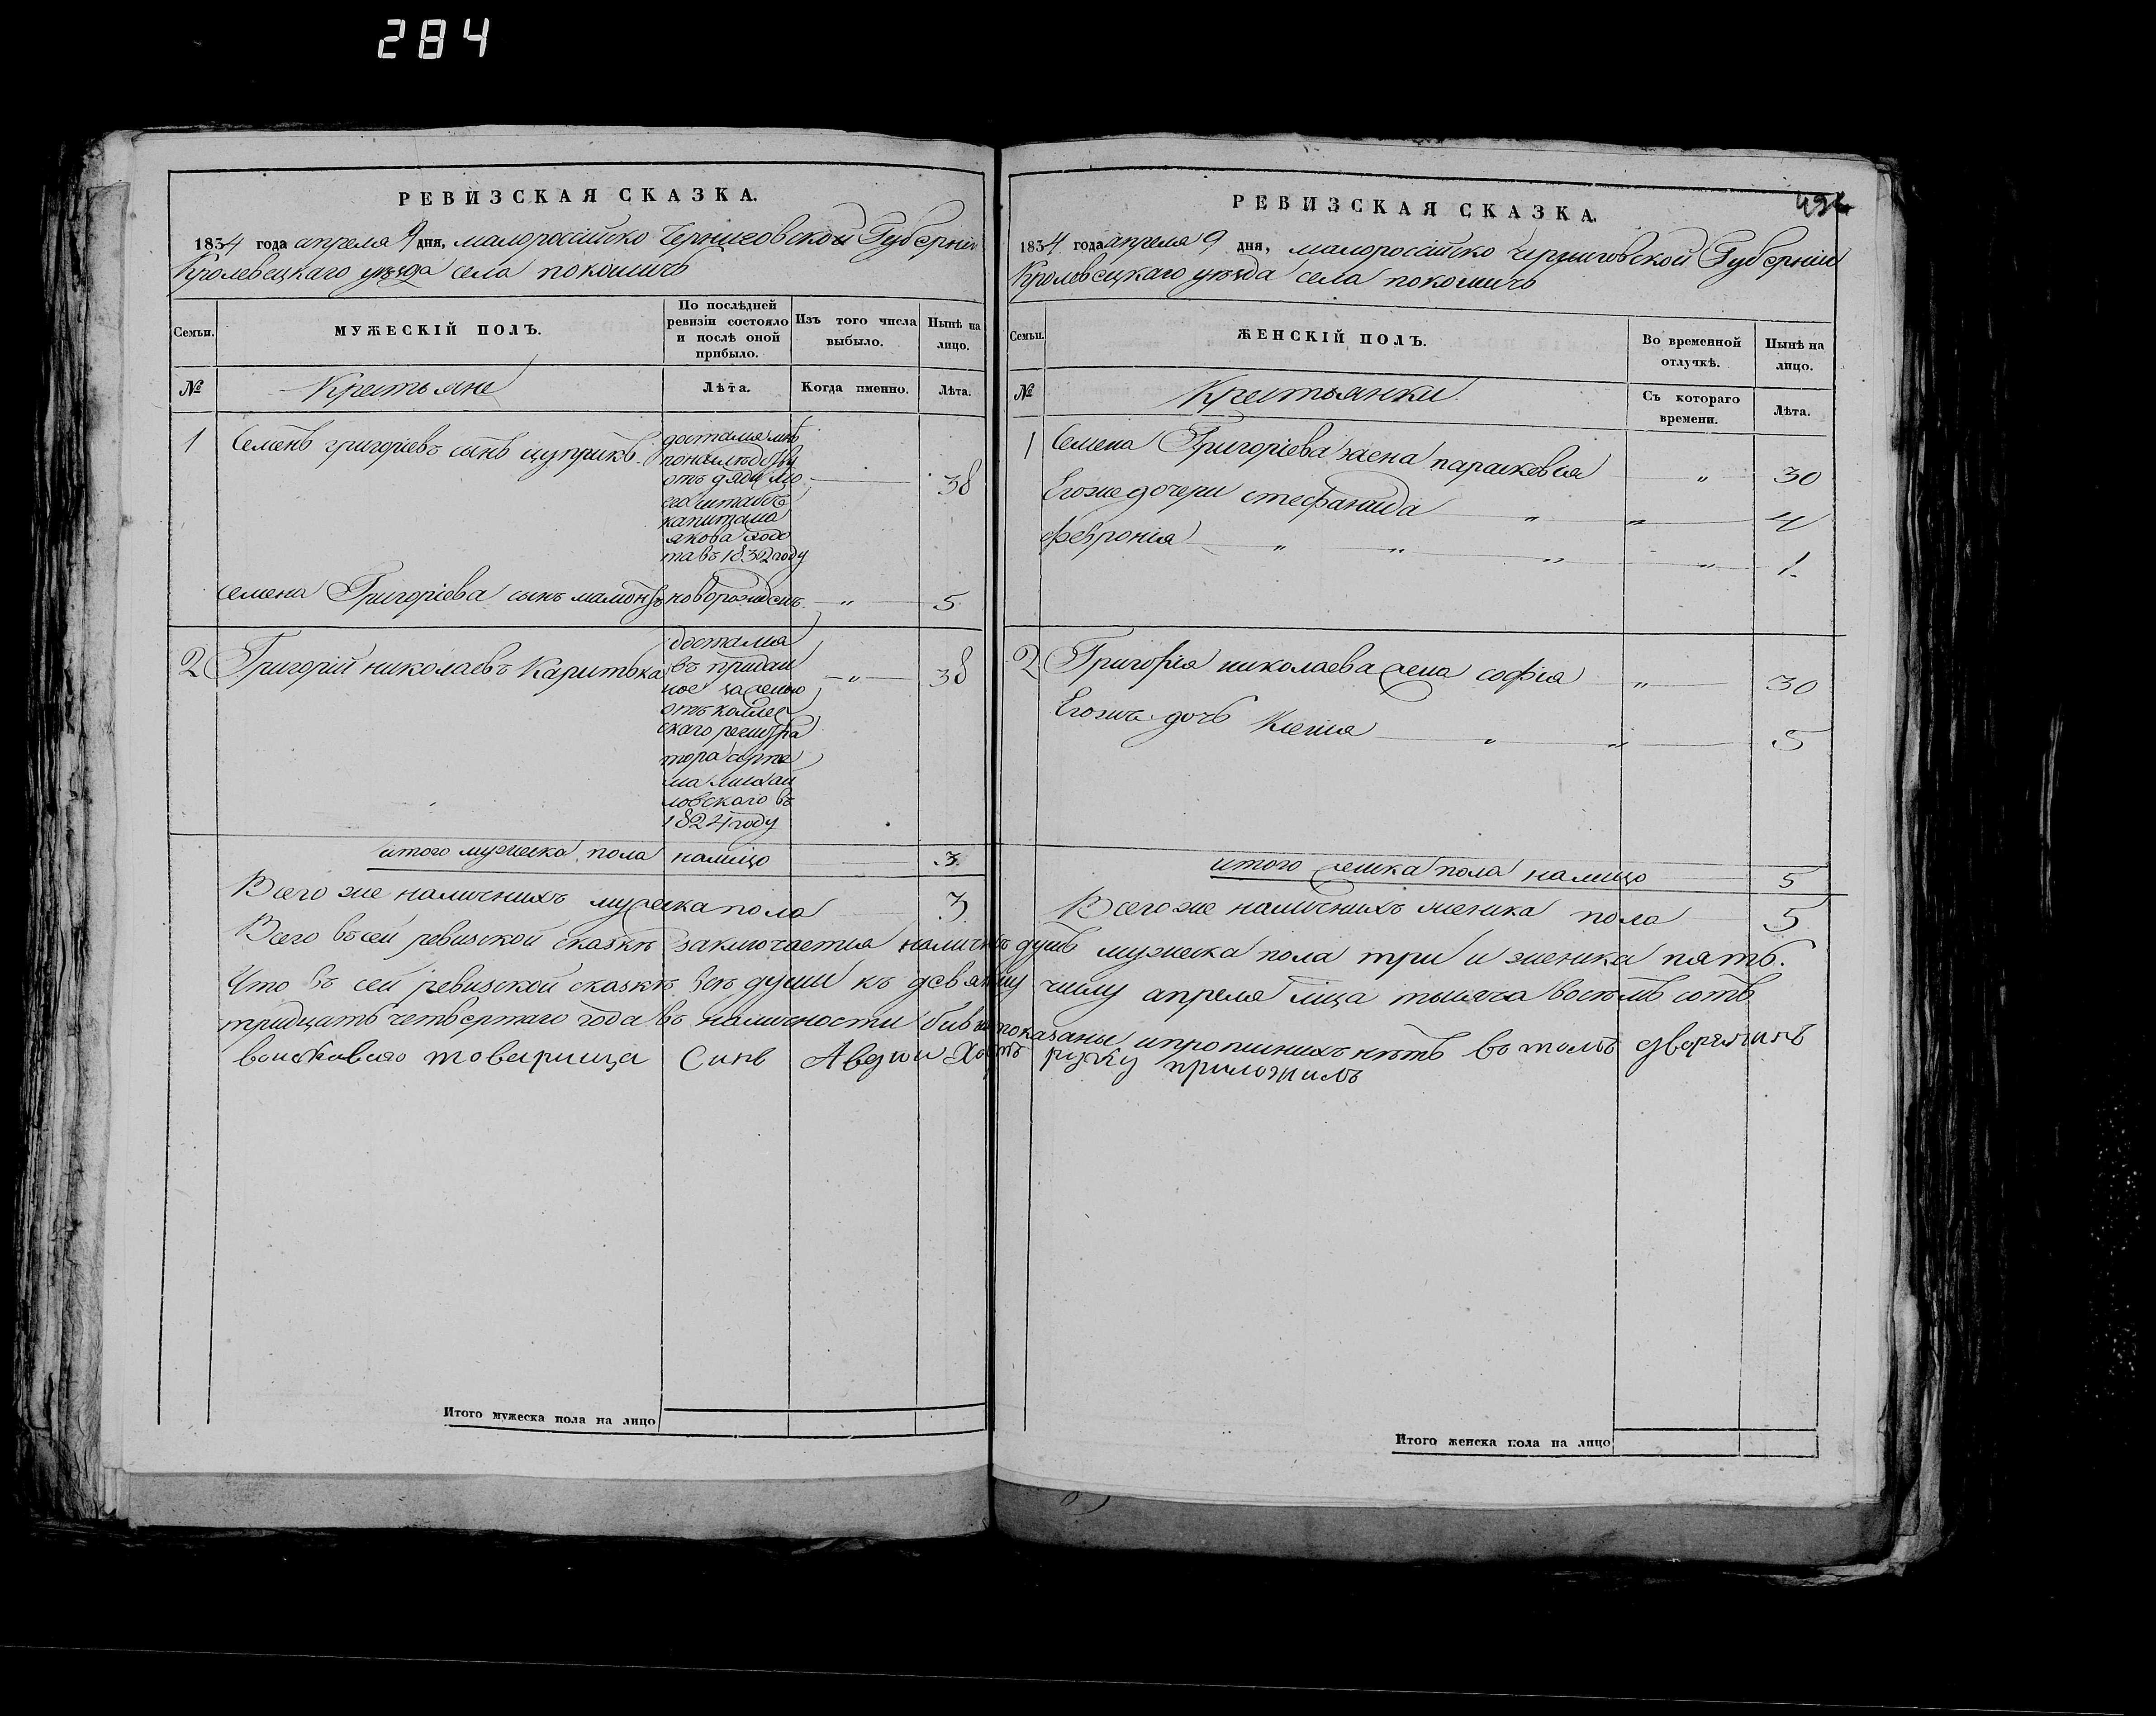 284
РЕВИЗСКАЯ СКАЗКА.
1834 года апреля 9 дня, малоросійско Черниговской Губерніи
Кролевецкаго уѣзда села покошичъ
Семьи.
МУЖЕСКІЙ ПОЛЪ.
По послѣдней
ревизіи состояло
и послѣ оной
прибыло.
Изъ того числа
выбыло.
Нынѣ на
лицо.
№
Крестьяне
Лѣта.
Когда именно.
Лѣта.
1 Семенъ григоріевъ сынъ цуприкъ 38
отъ дяди
капитана
якова
та въ 1832 году
семена Григоріева сынъ мамонтъ новорожденъ " 5
2 Григорій николаевъ Каритька " 38
въ придан
ное за женою
отъ коллеж
скаго регистра
тора
ма михай
ловскаго въ
1824 году
итого мужеска пола налицо 3
Всего же наличнихъ мужеска пола 3
Итого мужеска пола на лицо
РЕВИЗСКАЯ СКАЗКА.
1834 года апреля 9 дня, малоросійско черниговской Губерніи
Кролевецкаго уѣзда села покошичъ
Семьи.
ЖЕНСКІЙ ПОЛЪ.
Во временной
отлучкѣ.
Нынѣ на
лицо.
№
Крестьянки
Съ котораго
времени.
Лѣта.
1 Семена Григоріева жена параскевія " 30
Егоже дочери стефанида " " 4
Февронія " " " " 1
2 Григорія николаева жена софія " 30
Егожъ дочь Ксенія " " 5
итого женска пола налицо 5
Всего же наличнихъ женска пола 5
Всего въ сей ревизской сказкѣ заключается наличнихъ душъ мужеска пола три и женска пять.
Что въ сей ревизской сказкѣ всѣ души къ девятому числу апреля мца тысяча восемъ сотъ
тридцать четвертаго года въ наличности бивши показаны и прописнихъ нѣтъ въ томъ дворянинъ
войсковаго товарища Синъ Авдии руку приложилъ
Итого женска пола на лицо